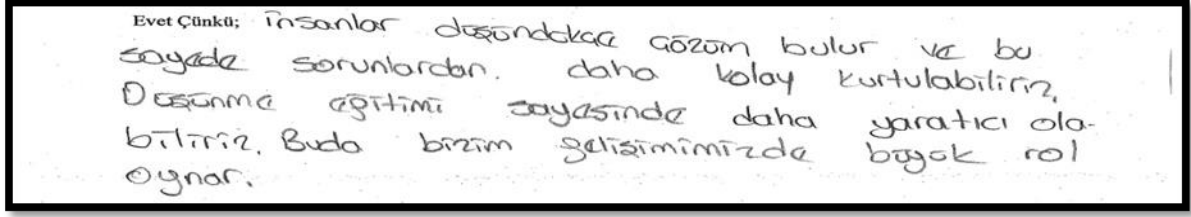 Evet Çünkü; insanlar düşündükçe çözüm bulur ve bu
sayede sorunlardan. daha kolay kurtulabiliriz.
Düşünme eğitimi sayesinde daha yaratıcı ola-
biliriz. Buda bizim gelişimimizde büyük rol
oynar.